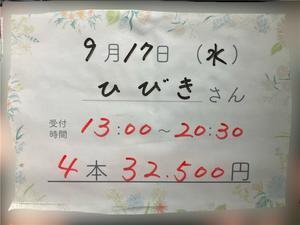 9月17日（水）
ひびきさん
受付時間 13:00～20:30
4本 32.500円